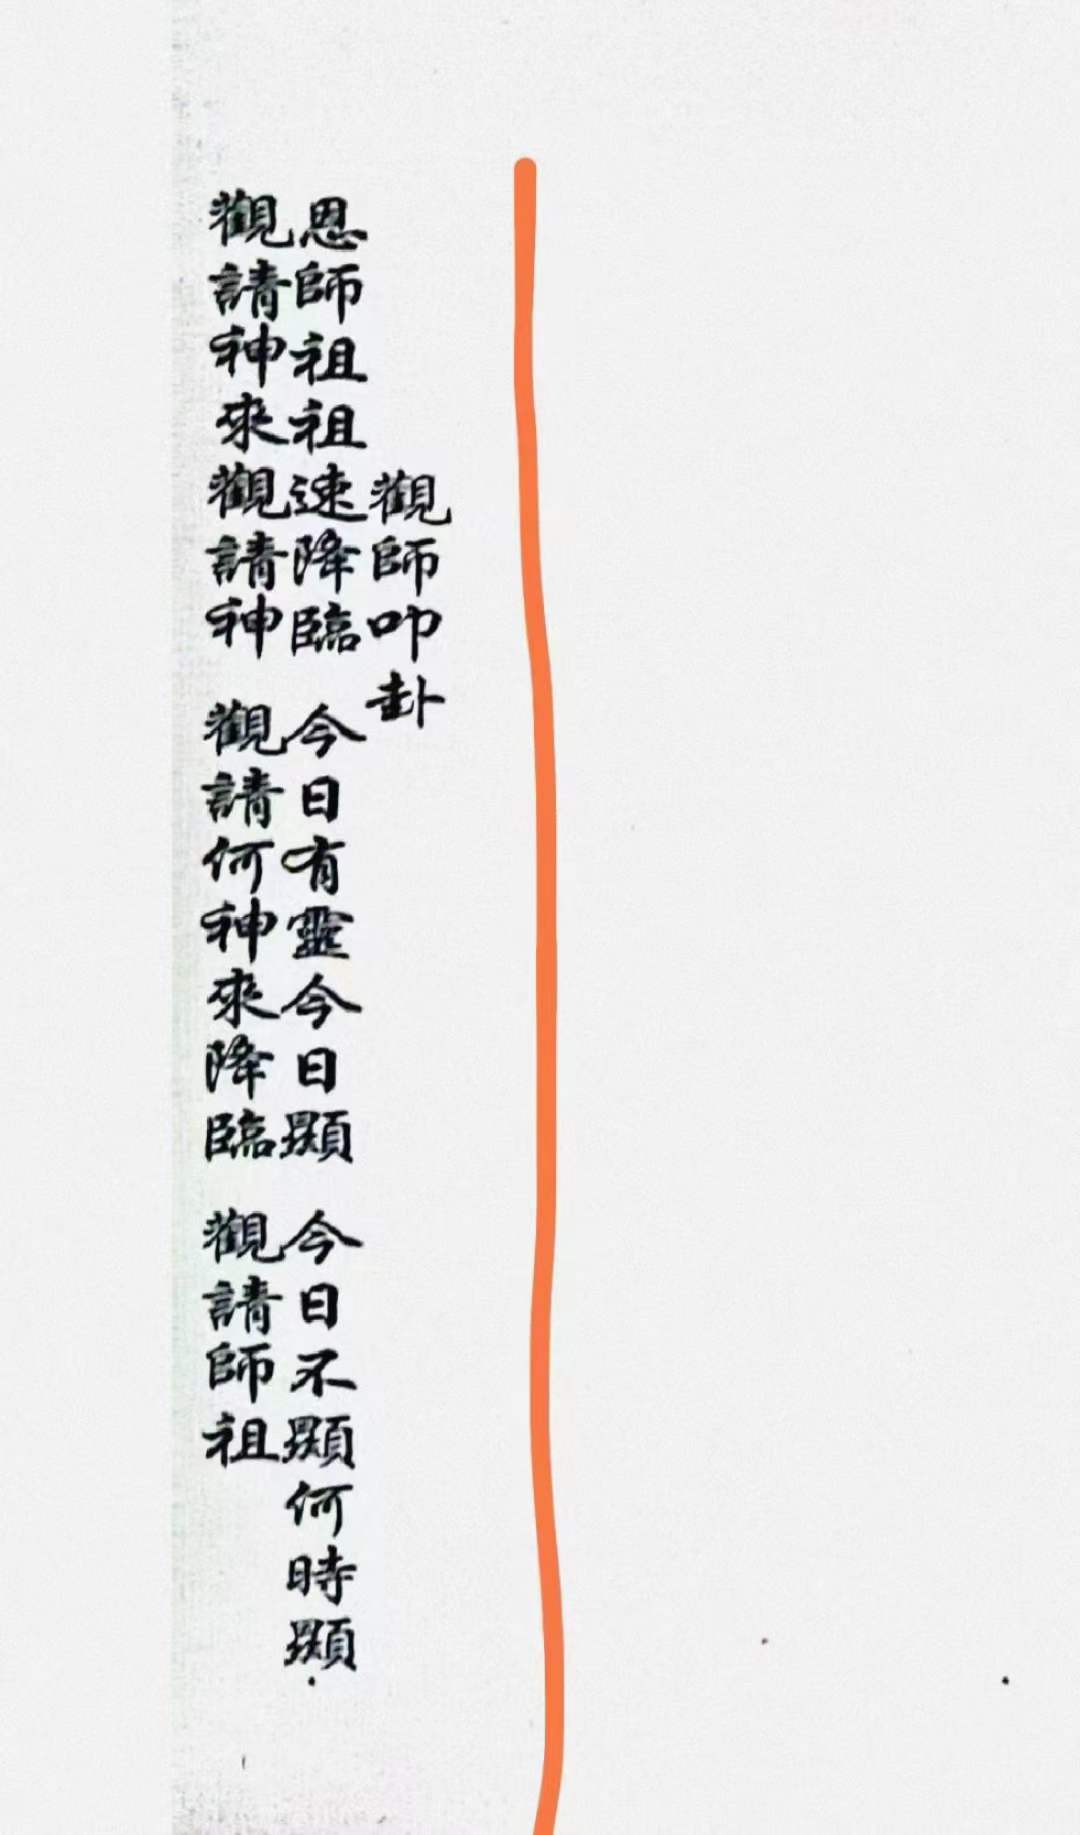 觀師叩卦
恩師祖祖速降臨 今日有靈今日顯 今日不顯何時顯
觀請神來觀請神 觀請何神來降臨 觀請師祖